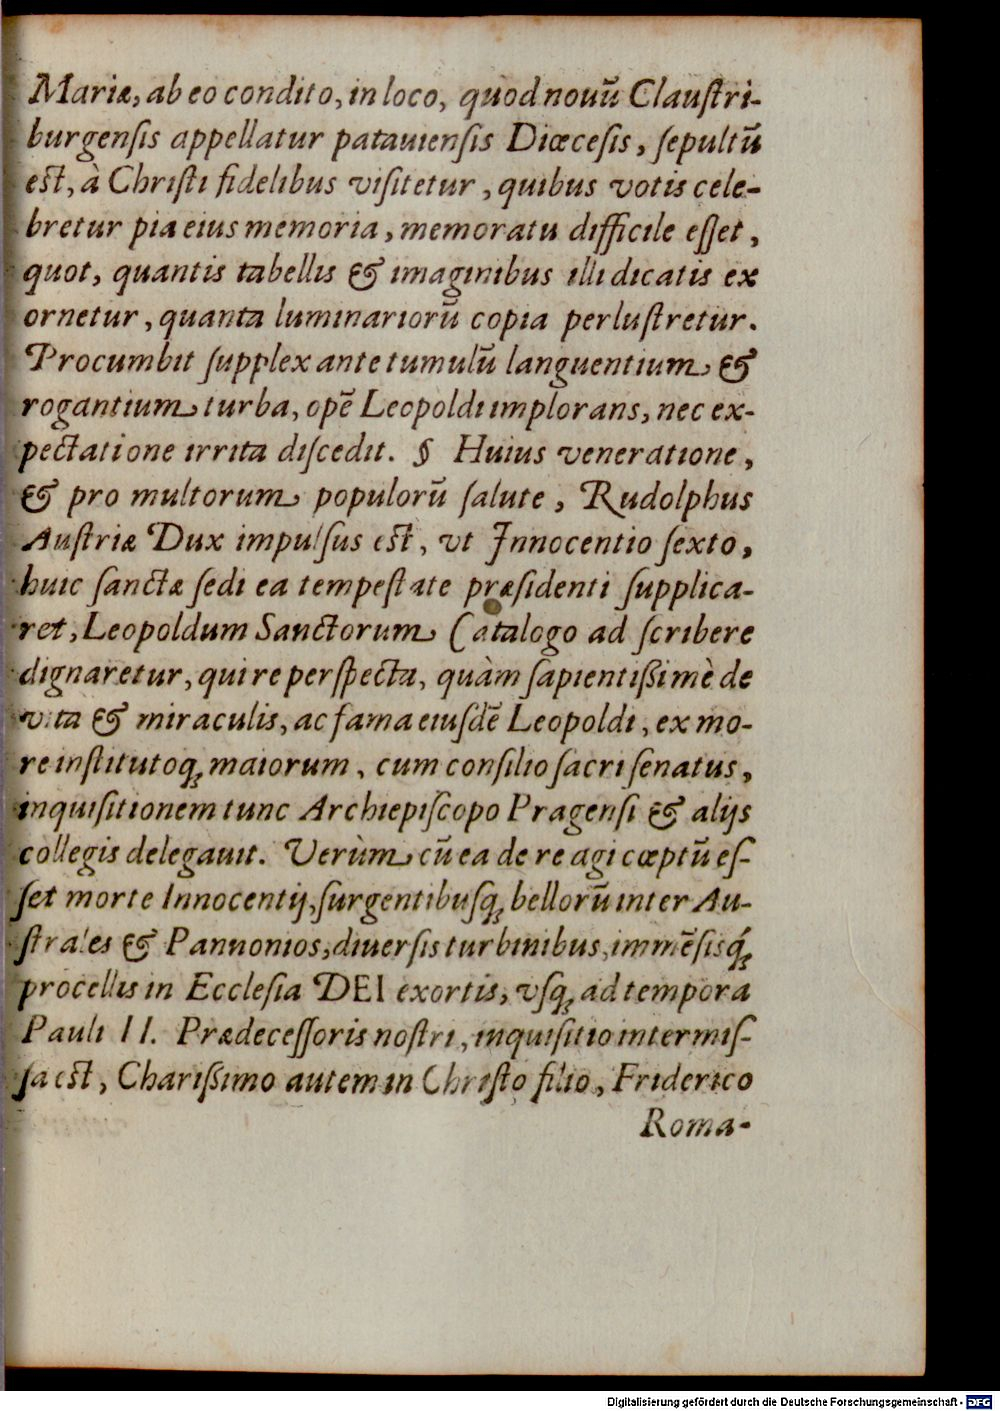 Mariæ, ab eo condito, in loco, quod nouũ Clauſtri-
burgenſis appellatur patauienſis Diœceſis, ſepultũ
eſt, à Chriſti fidelibus viſitetur, quibus votis cele-
bretur pia eius memoria, memoratu difficile eſſet,
quot, quantis tabellis & imaginibus illi dicatis ex
ornetur, quanta luminariorũ copia perluſtretur.
Procumbit ſupplex ante tumulũ languentium &
rogantium turba, opẽ Leopoldi implorans, nec ex-
pectatione irrita diſcedit. § Huius veneratione,
& pro multorum populorũ ſalute, Rudolphus
Auſtriæ Dux impulſus eſt, vt Innocentio ſexto,
huic ſanctæ ſedi ea tempeſtate præſidenti ſupplica-
ret, Leopoldum Sanctorum Catalogo ad ſcribere
dignaretur, qui re perſpecta, quàm ſapientißimè de
vita & miraculis, ac fama eiuſdẽ Leopoldi, ex mo-
re inſtitutoq; maiorum, cum conſilio ſacri ſenatus,
inquiſitionem tunc Archiepiſcopo Pragenſi & alijs
collegis delegauit. Verùm cũ ea de re agi cœptũ eſ-
ſet morte Innocentij, ſurgentibuſq; bellorũ inter Au-
ſtrales & Pannonios, diuerſis turbinibus, immẽſisq́;
procellis in Eccleſia DEI exortis, vſq; ad tempora
Pauli II. Prædeceſſoris noſtri, inquiſitio intermiſ-
ſa eſt, Charißimo autem in Chriſto filio, Friderico
Roma-
Digitalisierung gefördert durch die Deutsche Forschungsgemeinschaft - DFG